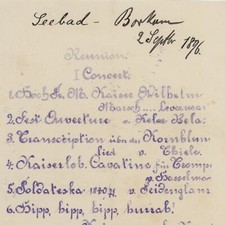 Seebad – Borkum
2 Septbr 1896.
Reunion.
I Concert.
1. Hoch S. M. Kaiser Wilhelm
Marsch
2. Fest Ouverture v. Keler Bela.
3. Transcription über das Kornblum
lied v. Thiele.
4. Kaiserlob. Cavatine für Tromp.
v. Hasselman
5. Soldateska 1870/71 v. Seidenglanz
6. Hipp, hipp, hipp, hurrah!